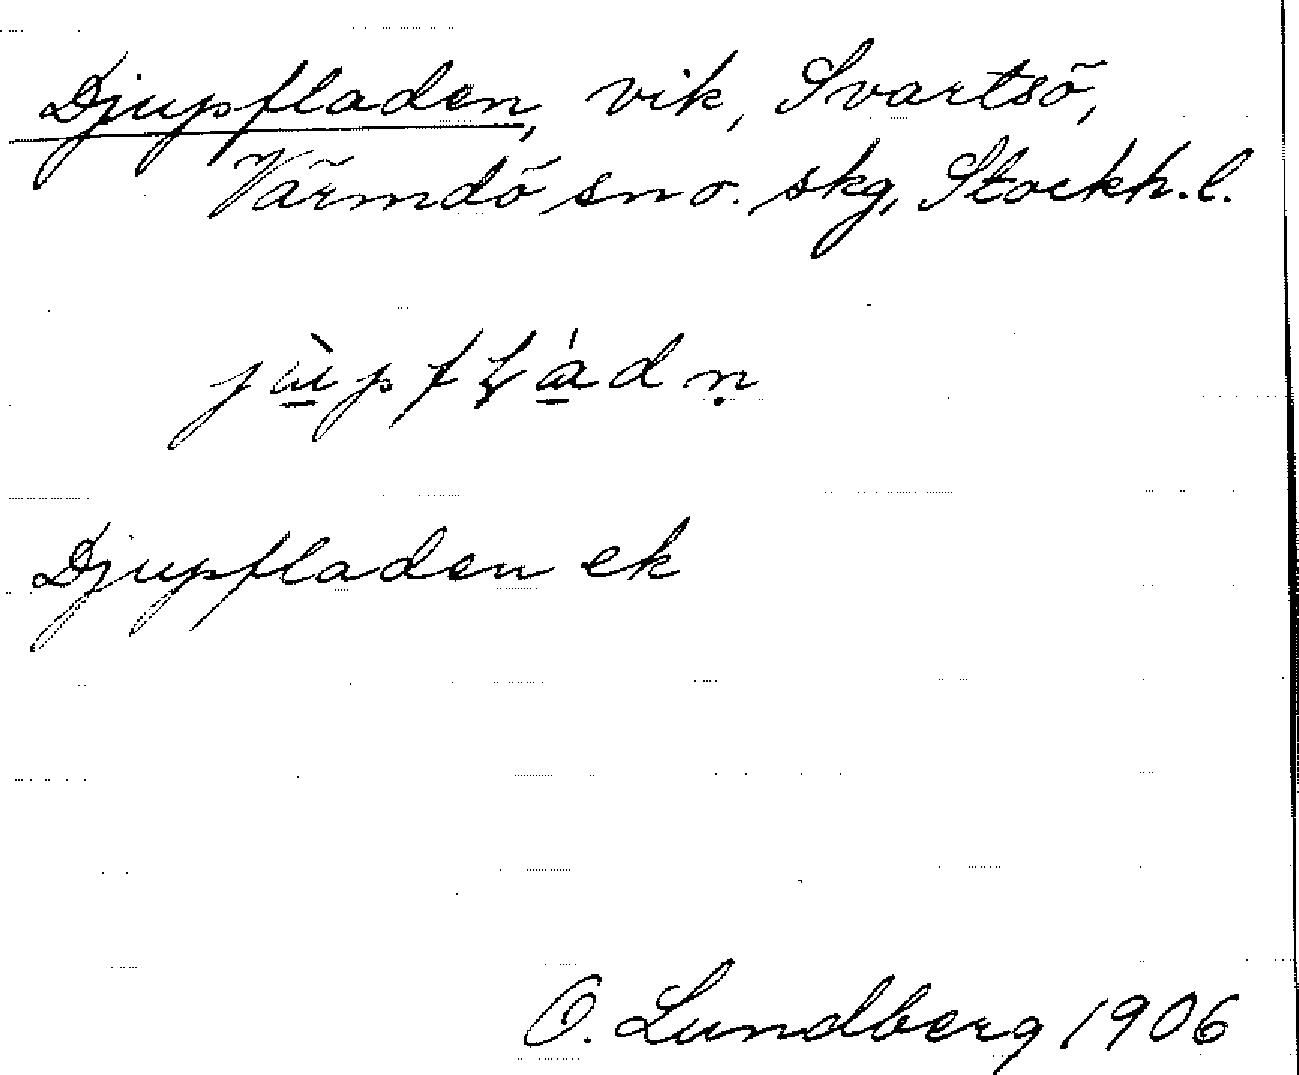 Djupfladen, vik, Svartsö,
Värmdö sn o. skg, Stockh. l.
jùpfłádṇ
Djupfladen ek
O. Lundberg 1906